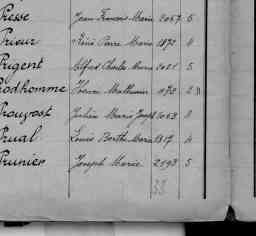 Presse Jean François Marie 2067 5
Prieur René Pierre Marie 1872 4
Prigent Alfred Charles Marie 2021 5
Prodhomme Mathurin 1172 23
Prouvost Julien Marie Joseph 2063
Prual Louis Marie 1317 4
Prunier Joseph Marie 2193 5
33